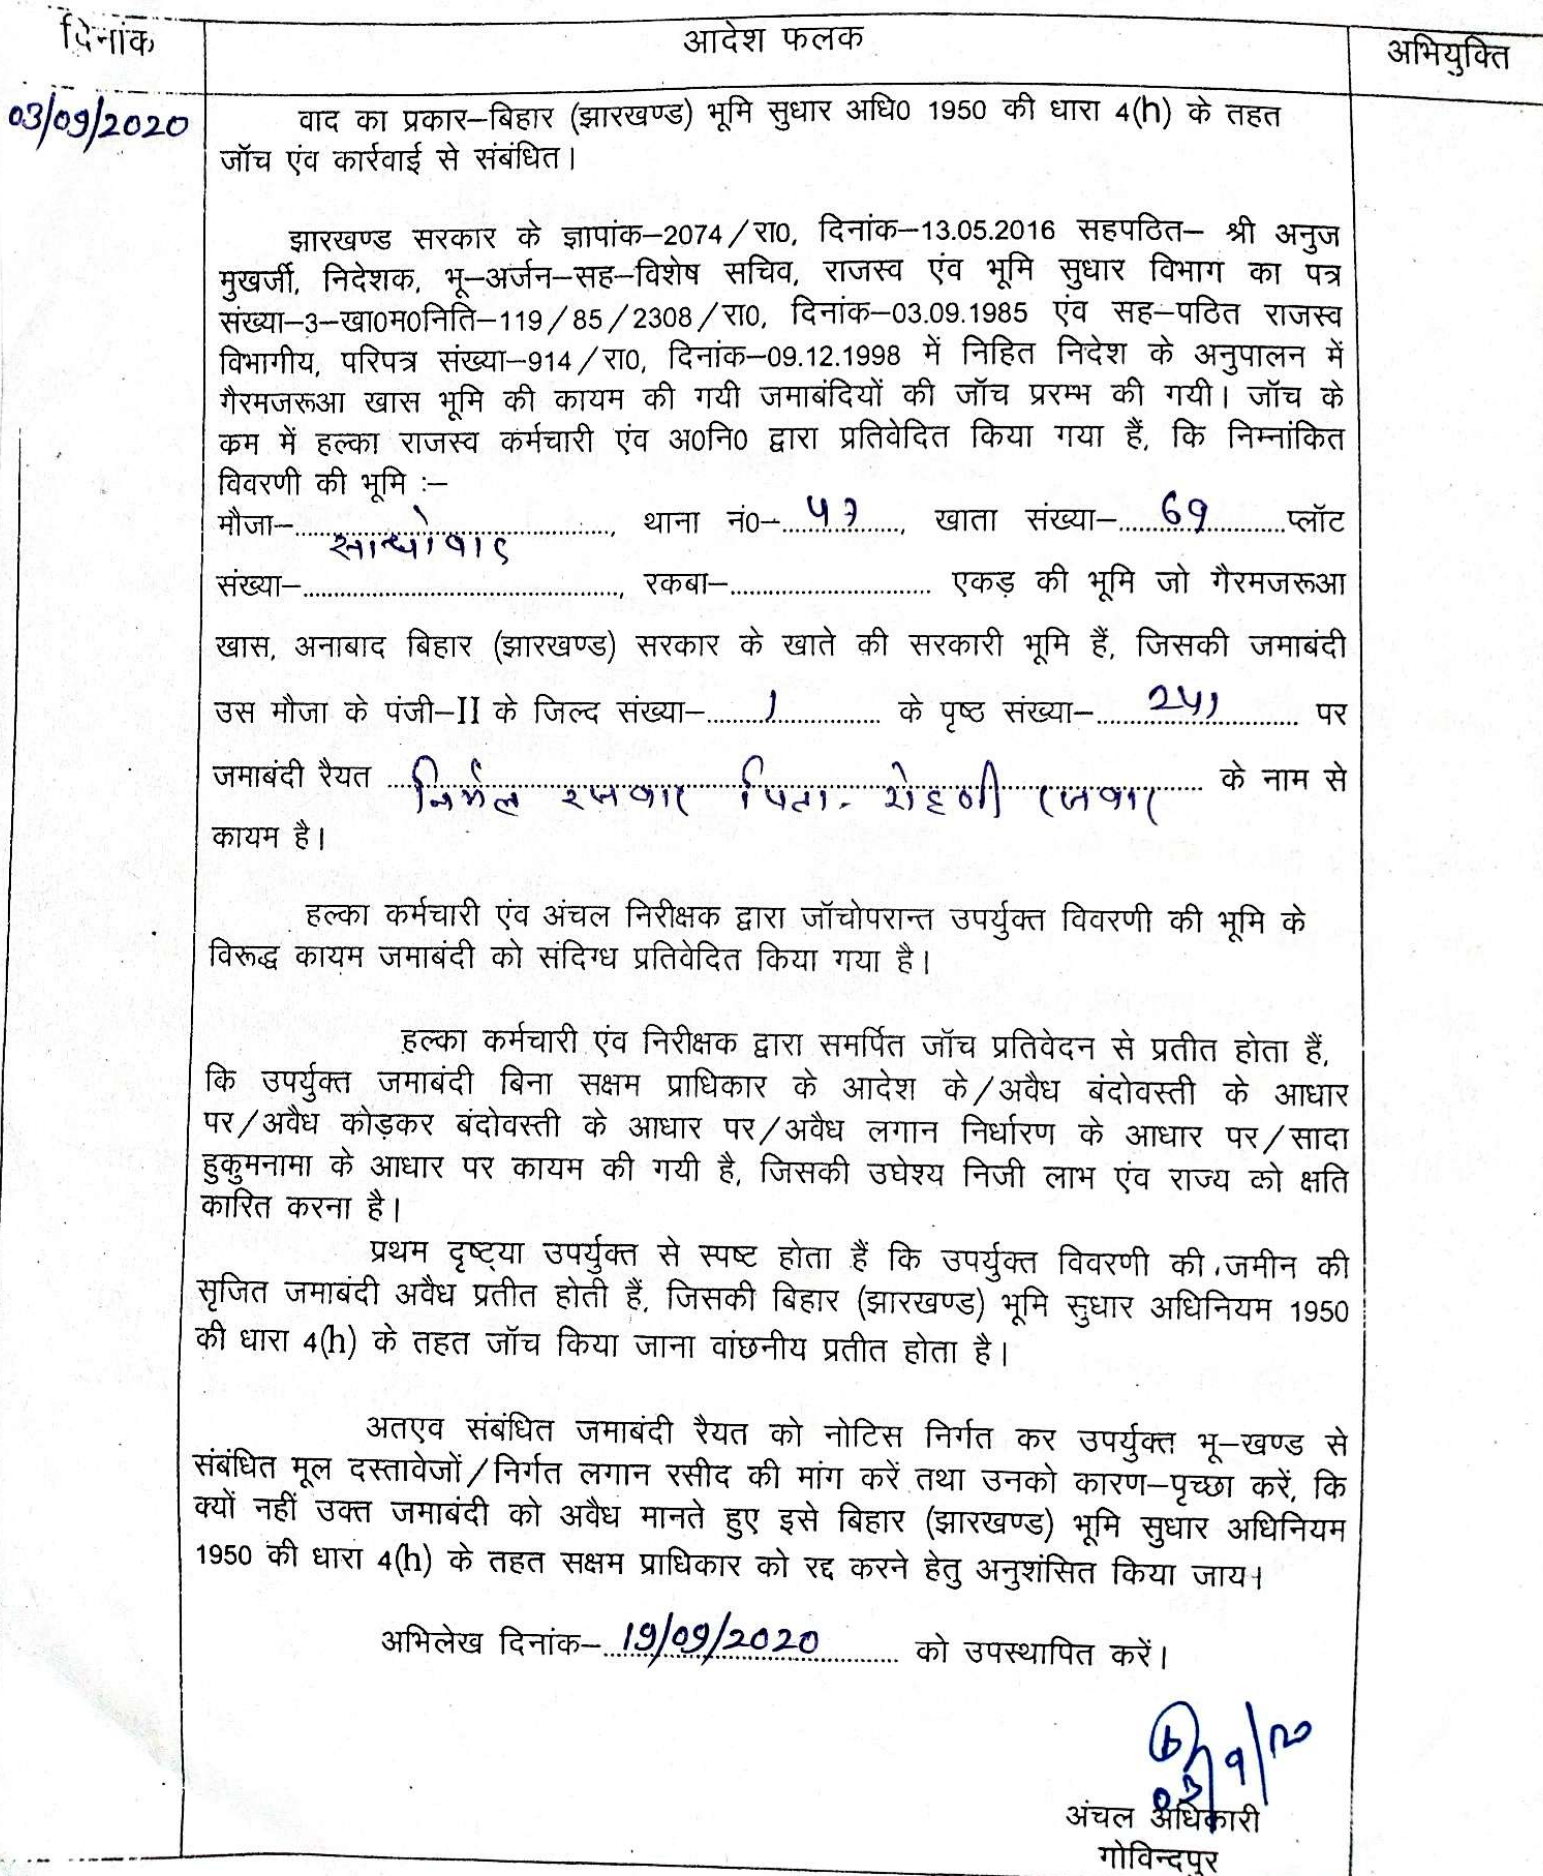 दिनांक
आदेश फलक
अभियुक्ति
03/09/2020
वाद का प्रकार–बिहार (झारखण्ड) भूमि सुधार अधि0 1950 की धारा 4(h) के तहत
जॉच एंव कार्रवाई से संबंधित।
झारखण्ड सरकार के ज्ञापांक–2074/रा0, दिनांक–13.05.2016 सहपठित– श्री अनुज
मुखर्जी, निदेशक, भू–अर्जन–सह–विशेष सचिव, राजस्व एंव भूमि सुधार विभाग का पत्र
संख्या–3–खा0म0निति–119/85/2308/रा0, दिनांक–03.09.1985 एंव सह–पठित राजस्व
विभागीय, परिपत्र संख्या–914/रा0, दिनांक–09.12.1998 में निहित निदेश के अनुपालन में
गैरमजरूआ खास भूमि की कायम की गयी जमाबंदियों की जॉच प्ररम्भ की गयी। जॉच के
कम में हल्का राजस्व कर्मचारी एंव अ0नि0 द्वारा प्रतिवेदित किया गया हैं, कि निम्नांकित
विवरणी की भूमि :–
मौजा–...................., थाना नं0–.........., खाता संख्या–....69....प्लॉट
संख्या–...................., रकबा–.................... एकड़ की भूमि जो गैरमजरूआ
खास, अनाबाद बिहार (झारखण्ड) सरकार के खाते की सरकारी भूमि हैं, जिसकी जमाबंदी
उस मौजा के पंजी–II के जिल्द संख्या–....1.... के पृष्ठ संख्या–....241.... पर
जमाबंदी रैयत निर्मल रजवार पिता- रोहणी रजवार के नाम से
कायम है।
हल्का कर्मचारी एंव अंचल निरीक्षक द्वारा जॉचोपरान्त उपर्युक्त विवरणी की भूमि के
विरूद्ध कायम जमाबंदी को संदिग्ध प्रतिवेदित किया गया है।
हल्का कर्मचारी एंव निरीक्षक द्वारा समर्पित जॉच प्रतिवेदन से प्रतीत होता हैं,
कि उपर्युक्त जमाबंदी बिना सक्षम प्राधिकार के आदेश के/अवैध बंदोवस्ती के आधार
पर/अवैध कोड़कर बंदोवस्ती के आधार पर/अवैध लगान निर्धारण के आधार पर/सादा
हुकुमनामा के आधार पर कायम की गयी है, जिसकी उघेश्य निजी लाभ एंव राज्य को क्षति
कारित करना है।
प्रथम दृष्ट्या उपर्युक्त से स्पष्ट होता हैं कि उपर्युक्त विवरणी की जमीन की
सृजित जमाबंदी अवैध प्रतीत होती हैं, जिसकी बिहार (झारखण्ड) भूमि सुधार अधिनियम 1950
की धारा 4(h) के तहत जॉच किया जाना वांछनीय प्रतीत होता है।
अतएव संबंधित जमाबंदी रैयत को नोटिस निर्गत कर उपर्युक्त भू–खण्ड से
संबंधित मूल दस्तावेजों/निर्गत लगान रसीद की मांग करें तथा उनको कारण–पृच्छा करें, कि
क्यों नहीं उक्त जमाबंदी को अवैध मानते हुए इसे बिहार (झारखण्ड) भूमि सुधार अधिनियम
1950 की धारा 4(h) के तहत सक्षम प्राधिकार को रद्द करने हेतु अनुशंसित किया जाय।
अभिलेख दिनांक–19/09/2020 को उपस्थापित करें।
03/9/20
अंचल अधिकारी
गोविन्दपुर